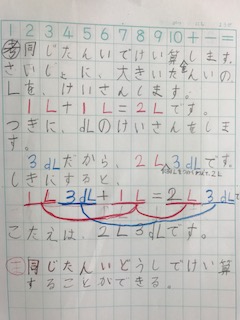 1 2 3 4 5 6 7 8 9 10 + - =
考 同じたんいでけい算します。
さいしょに、大きいたんいの
Lを、けいさんします。
1L+1L=2Lです。
つぎに、dLのけいさんをしま
す。
3dLだから、2L3dLです。
しきにすると、
1L3dL+1L=2L3dL
こたえは、2L3dLです。
ま 同じたんいどうしでけい算
することができる。